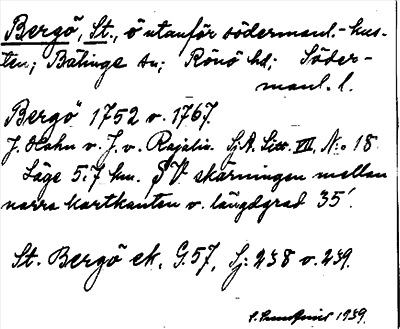 Bergö, St., ö utanför södermanl.-kus-
ten; Bälinge sn; Rönö hd; Söder-
manl. l.
Bergö 1752 v. 1767.
J. Olahn v. J. v. Rajalin. Sj.A. Litt. VII, N:o 18
Läge 5,7 km. SV skärningen mellan
norra kartkanten v. längdgrad 35'.
St. Bergö ek. G.57, Sj: 238 v. 239.
1939.